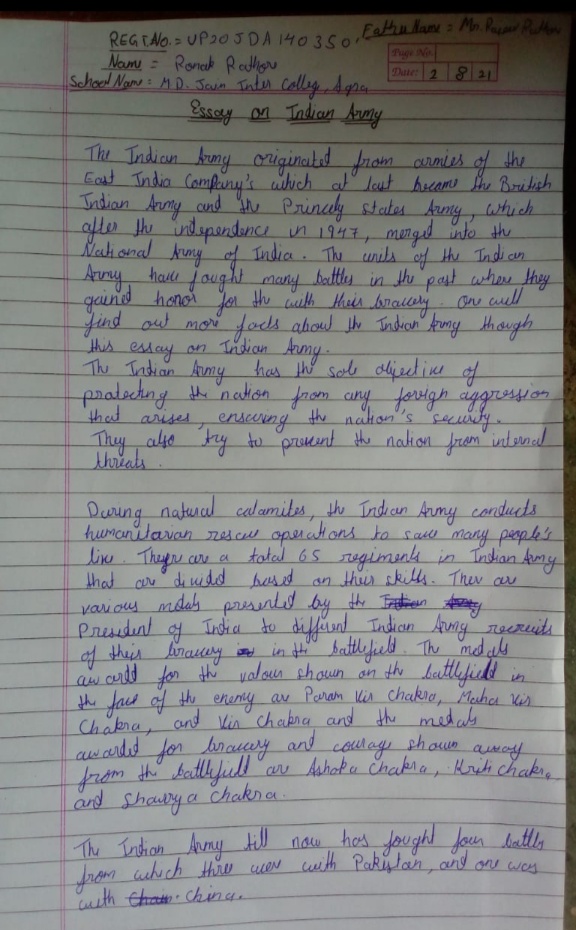 REGT.NO. = UP20JDA140350, Father Name = Mr. Pawan Rathor
Page No.
Name = Ronak Rathor
Date: 2 8 21
School Name = M.D. Jain Inter College, Agra
Essay on Indian Army
The Indian Army originated from armies of the
East India Company's which at last became the British
Indian Army and the Princely states Army, which
after the independence in 1947, merged into the
National Army of India. The units of the Indian
Army have fought many battles in the past where they
gained honor for the with their bravery. One will
find out more facts about the Indian Army though
this essay on Indian Army.
The Indian Army has the sole objective of
protecting the nation from any foreign aggression
that arises, ensuring the nation's security.
They also try to prevent the nation from internal
threats.
During natural calamites, the Indian Army conducts
humanitarian rescue operations to save many people's
live. They are a total 65 regiments in Indian Army
that are divided based on their skills. Ther are
various medals presented by the Indian Army
President of India to different Indian Army recruits
of their bravery in in the battlefield. The medals
awardd for the valour shown on the battlefield in
the face of the enemy are Param Vir Chakra, Maha Vir
Chakra, and Vir Chakra and the medals
awarded for bravery and courage shown away
from the battlefield are Ashoka Chakra, Kriti chakra,
and Shaurya Chakra.
The Indian Army till now has fought four battls
from which three were with Pakistan, and one was
with China.